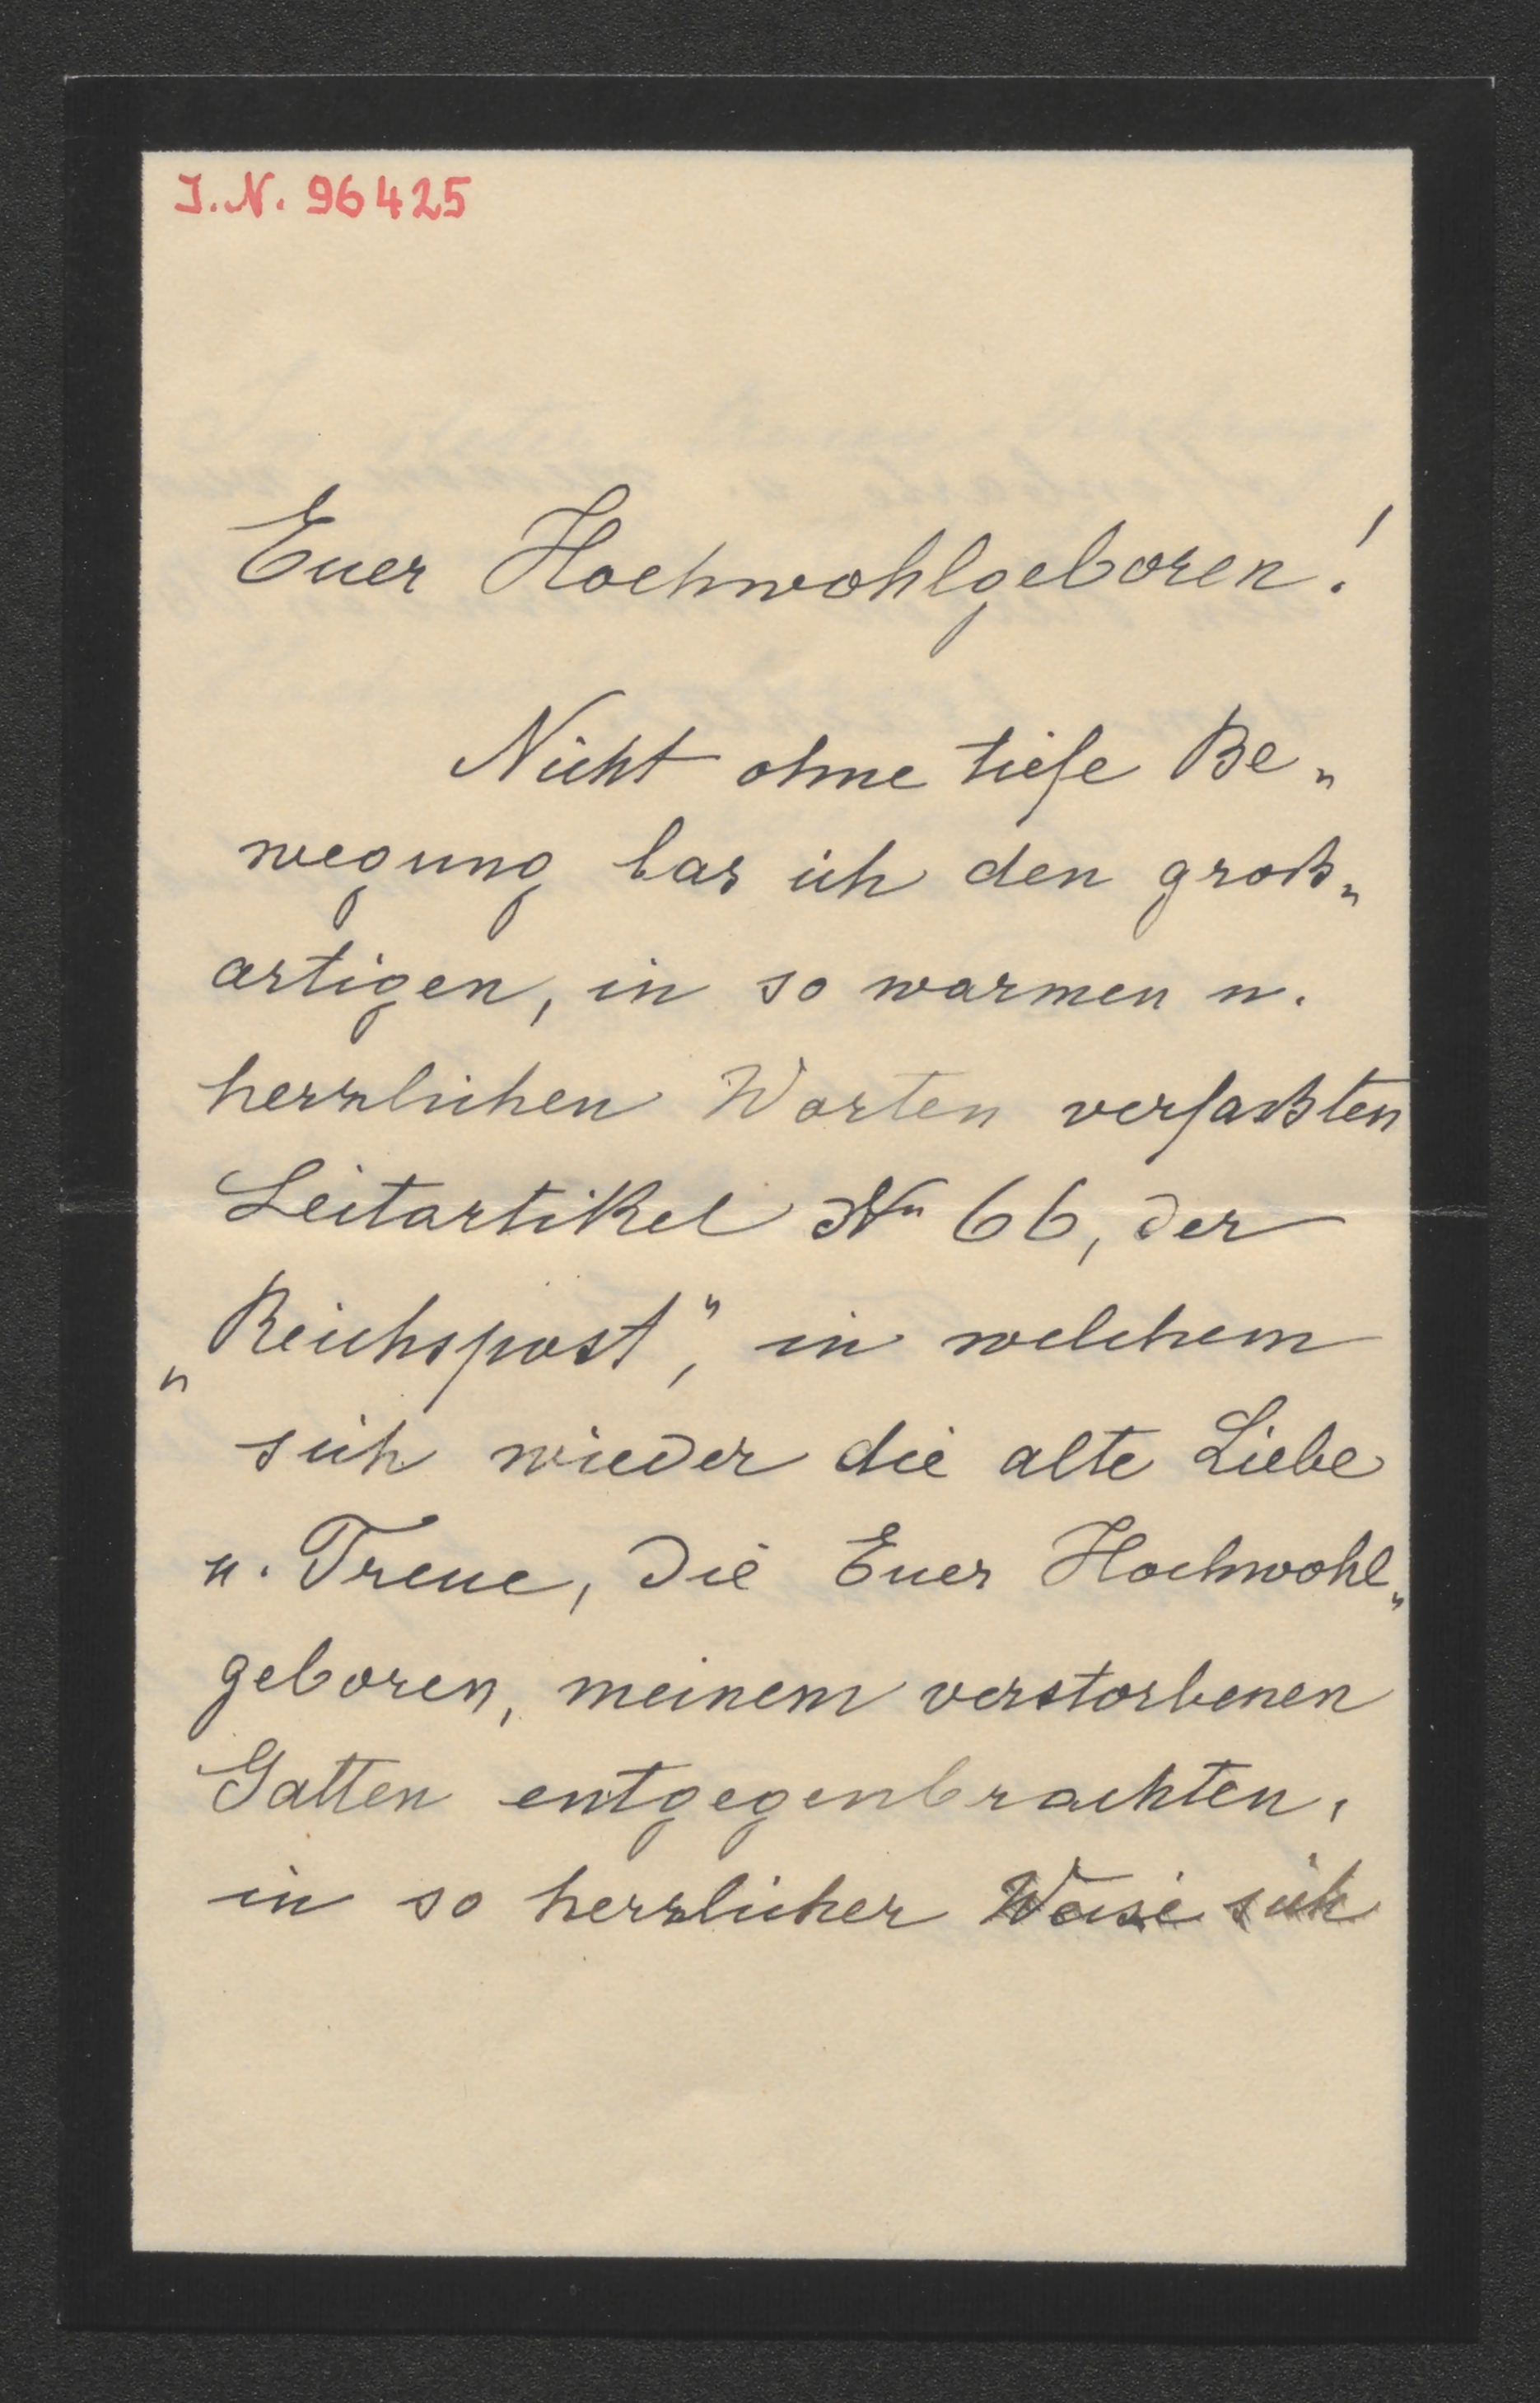 I.N. 96425
Euer Hochwohlgeboren!
Nicht ohne tiefe Be„
wegung las ich den groß„
artigen, in so warmen u.
herzlichen Worten verfaßten
Leitartikel Nr 66, der
„Reichspost", in welchem
sich wieder die alte Liebe
u. Treue, die Euer Hochwohl„
geboren, meinem verstorbenen
Gatten entgegenbrachten,
in so herzlicher Weise sich